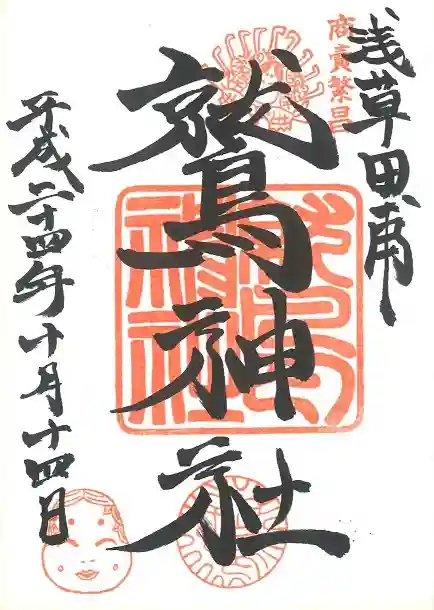 浅草田甫
商賣繁昌
鷲神社
鷲神社
平成二十四年十月十四日